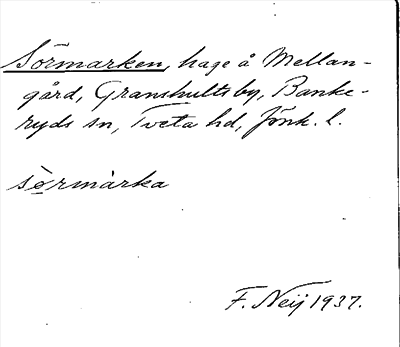 Sörmarken, hage å Mellan-
gård, Granshults by, Banke-
ryds sn, Tveta hd, Jönk. l.
sò̤rmàrka
F. Neij 1937.